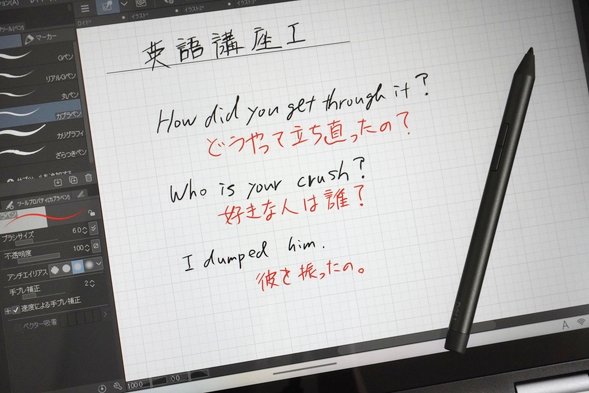 マーカー
Gペン
リアルGペン
丸ペン
カブラペン
カリグラフィ
ざらつきペン
ツールプロパティ[カブラペン]
ブラシサイズ 6.0
不透明度 100
アンチエイリアス
手ブレ補正 2
速度による手ブレ補正
ベクター吸着
英語講座 I
How did you get through it?
どうやって立ち直ったの?
Who is your crush?
好きな人は誰?
I dumped him.
彼を振ったの。
100.0
0.0
A